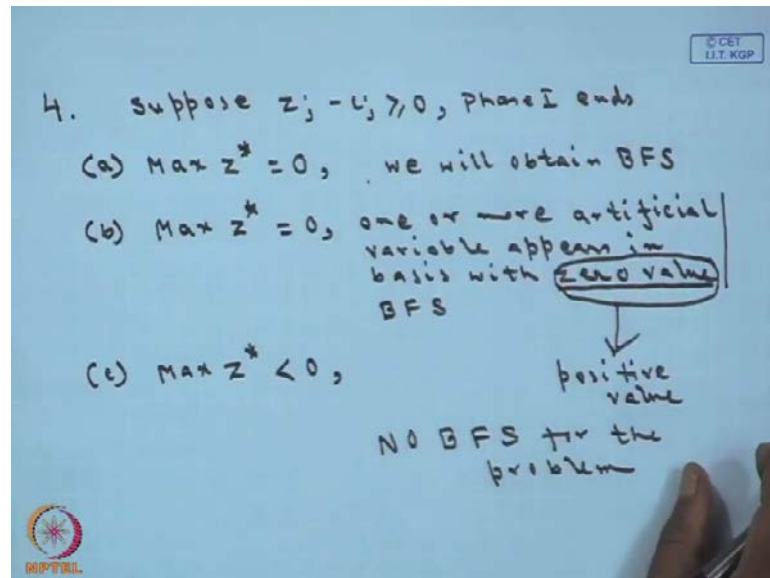 © CET
I.I.T. KGP
4. Suppose zj - cj ≥ 0, Phase I ends
(a) Max z* = 0, we will obtain BFS
(b) Max z* = 0, one or more artificial
variable appears in
basis with zero value
BFS
(c) Max z* < 0,
positive
value
NO BFS for the
problem
NPTEL